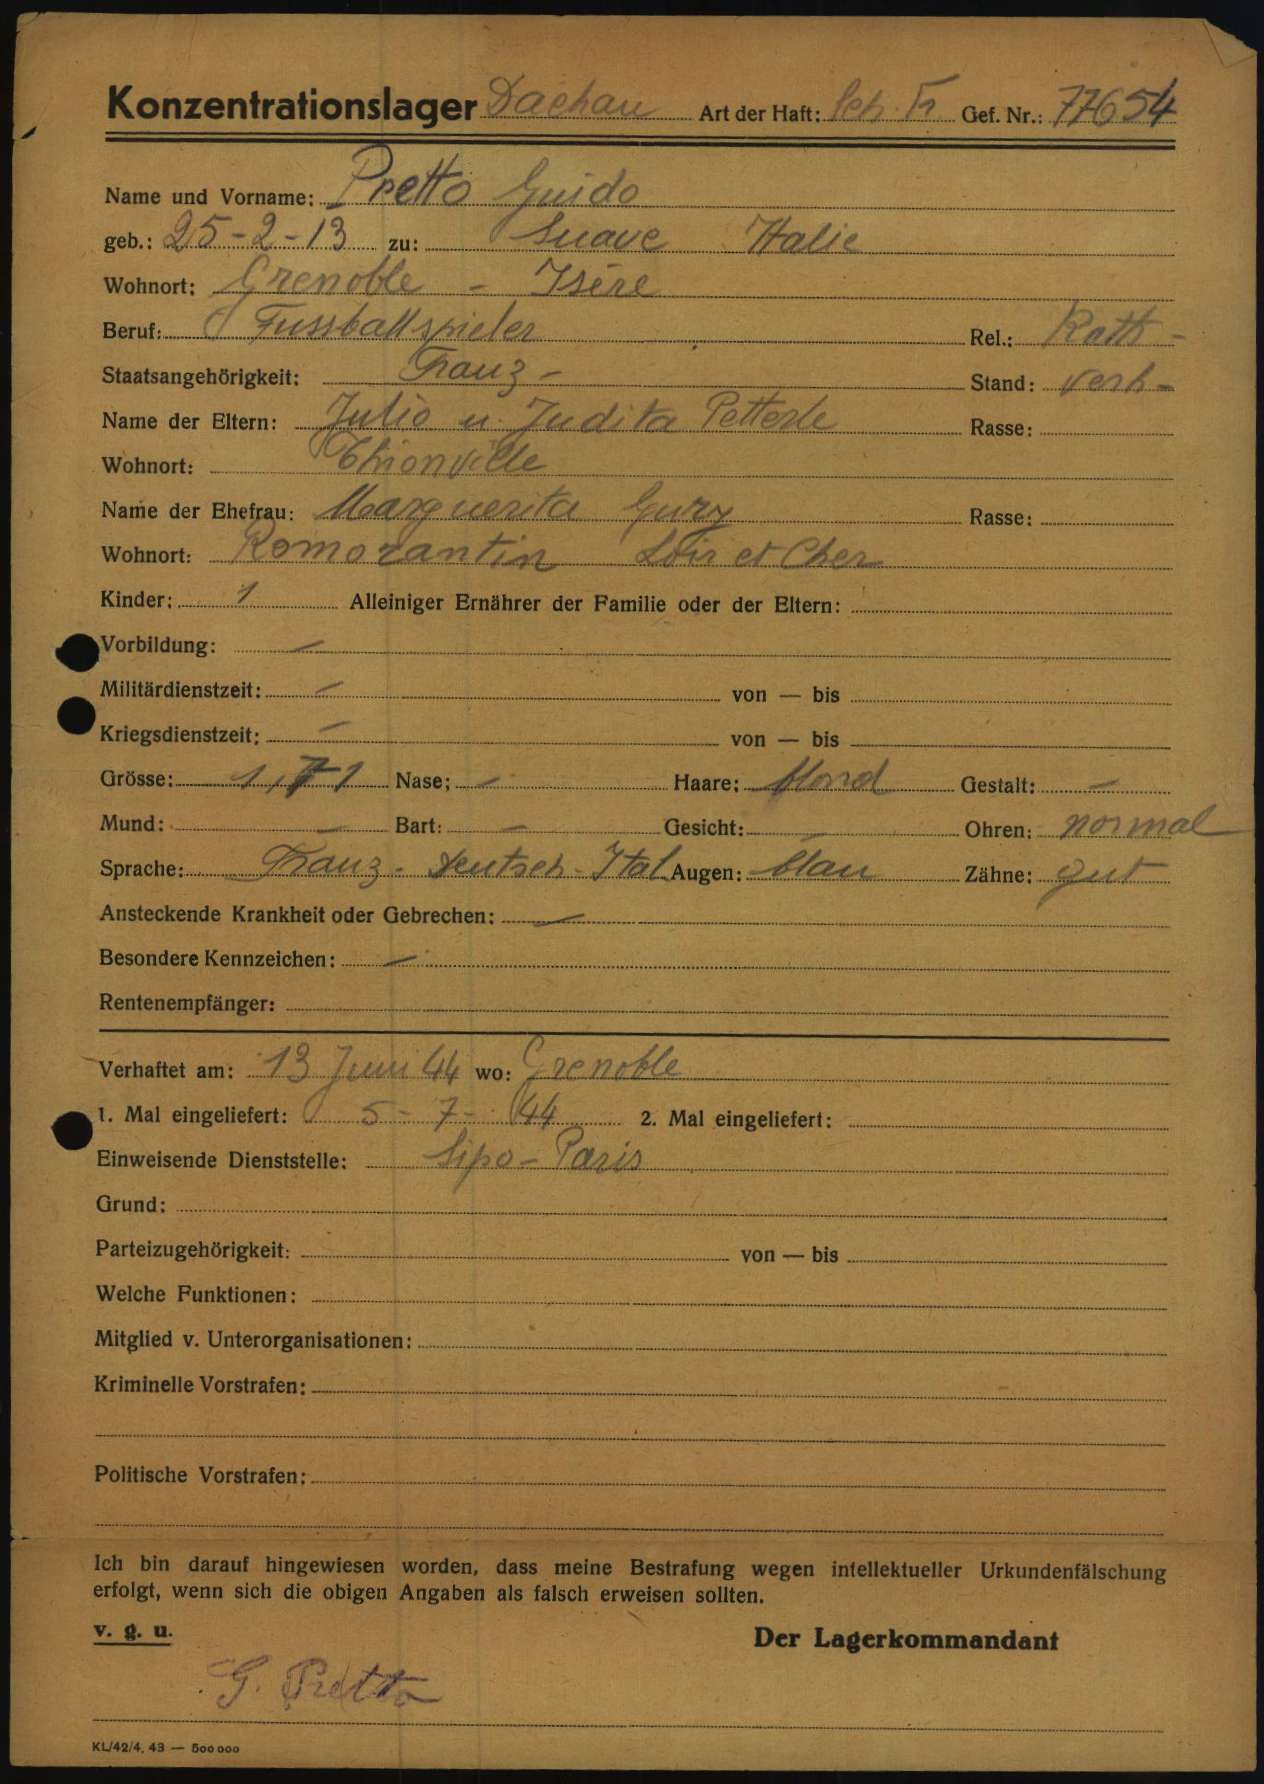 Konzentrationslager Dachau Art der Haft: Sch. Fr. Gef. Nr.: 77654
Name und Vorname: Pretto Guido
geb.: 25-2-13 zu: Suave Italie
Wohnort: Grenoble - Isère
Beruf: Fussballspieler Rel.: Kath-
Staatsangehörigkeit: Franz- Stand: verh-
Name der Eltern: Julio u. Judita Petterle Rasse:
Wohnort: Thionville
Name der Ehefrau: Marguerita Gury Rasse:
Wohnort: Romorantin Loir et Cher
Kinder: 1 Alleiniger Ernährer der Familie oder der Eltern:
Vorbildung: -
Militärdienstzeit: - von — bis
Kriegsdienstzeit: - von — bis
Grösse: 1,71 Nase: - Haare: blond Gestalt: -
Mund: - Bart: - Gesicht: - Ohren: normal
Sprache: Franz. Deutsch-Ital Augen: blau Zähne: gut
Ansteckende Krankheit oder Gebrechen: -
Besondere Kennzeichen: -
Rentenempfänger:
Verhaftet am: 13 Juni 44 wo: Grenoble
1. Mal eingeliefert: 5-7-44 2. Mal eingeliefert:
Einweisende Dienststelle: Sipo-Paris
Grund:
Parteizugehörigkeit: von — bis
Welche Funktionen:
Mitglied v. Unterorganisationen:
Kriminelle Vorstrafen:
Politische Vorstrafen:
Ich bin darauf hingewiesen worden, dass meine Bestrafung wegen intellektueller Urkundenfälschung
erfolgt, wenn sich die obigen Angaben als falsch erweisen sollten.
v. g. u. Der Lagerkommandant
G. Pretto
KL/42/4. 43 — 500 000